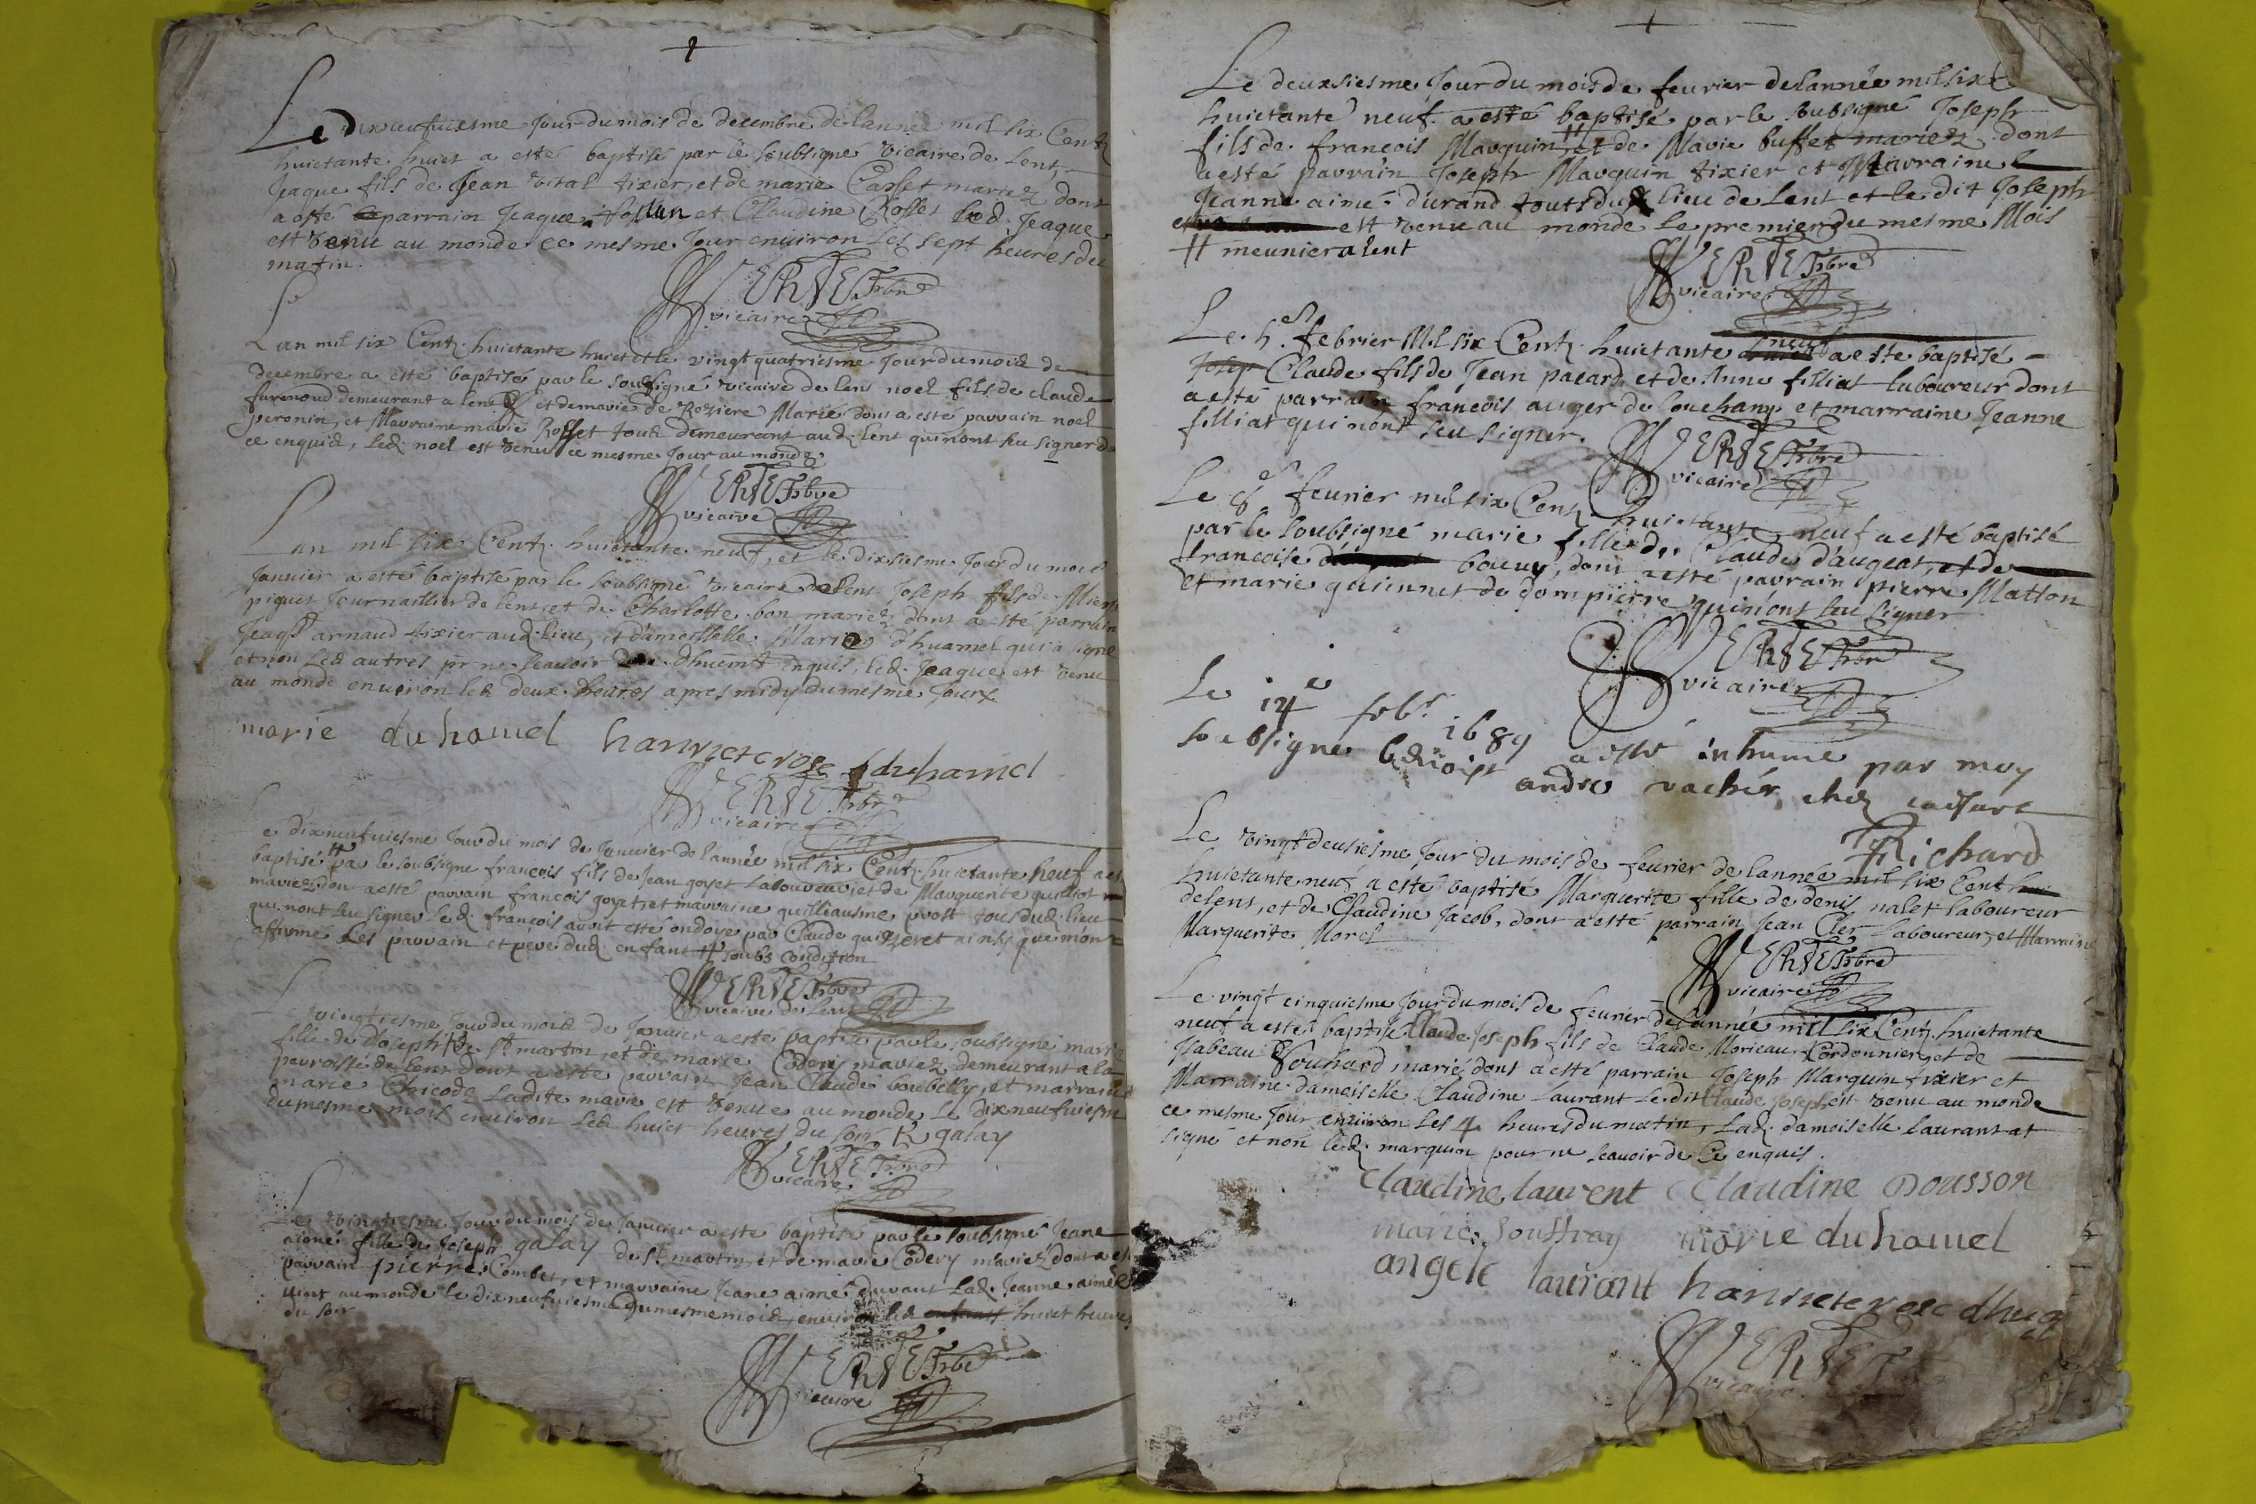 Le dixneufuiesme Jour du mois de decembre de lannee mil six Centz
huictante huict a esté baptisé par le soubsigné vicaire de Lent,
Jaque fils de Jean vital tixier, et de marie Casset mariez dont
a esté parrain Jeaque et Claudine Rosset led. Jeaque
est venu au monde ce mesme Jour enuiron les sept heures du
matin.
VERSET pbre
vicaire
Lan mil six Centz huictante huict et le vingt quatriesme Jour du mois de
decembre a esté baptisé par le soubsigné vicaire de lent noel fils de claude
demeurant a lent et de marie de Roziere Marie dont a esté parrain noel
peronin, et Marraine marie Rosset tous demeurant aud. lent qui nont sceu signer de
ce enquis, led. noel est venu ce mesme Jour au monde
VERSET pbre
vicaire
Lan mil six Centz huictante neuf, et le dixsiesme Jour du mois
Januier a esté baptisé par le soubsigné vicaire de Lent Joseph fils de
piquet Journaillier de lent, et de Charlotte bon mariez dont a esté parrain
arnaud tixier aud. lieu, et damoiselle Marie dhuamel qui a signé
et non les autres pr ne scauoir enquis, led. Jeaque est venu
au monde enuiron les deux heures apres midy du mesme Jour
marie du hamel hanriete rose duhamel
VERSET pbre
vicaire
Le dixneufuiesme Jour du mois de Januier de lannée mil six Centz huictante neuf a esté
baptisé # par le soubsigne françois fils de Jean goyet Laboureur et de Marguerite
mariez dont a esté parrain françois goyet et marraine prost tous dud. lieu
qui nont sceu signer led. françois auoit esté ondoyé par Claude ainsi que mon
affirmé les parrain et pere dud. enfant # soubs condition
VERSET pbre
vicaire de Lent
Le vingtiesme Jour du mois de Januier a esté baptisé par le soubsigné marie
fille de Joseph de St martin, et de marie Codery mariez demeurant a la
parroisse de lent dont a esté parrain Jean Claude et marraine
marie Chicod, Ladite marie est venue au monde le dixneufuiesme
du mesme mois enuiron les huict heures du soir # galay
VERSET pbre
vicaire
Le vingtiesme Jour du mois de Januier a esté baptisé par le soubsigné Jeane
aimé fille de Joseph galay de St martin, et de marie Codery mariez dont a esté
parrain pierre Combet, et marraine Jeane aimé durant Lad. Jeanne aimée
vint au monde le dixneufuiesme du mesme mois enuiron les huict heures
du soir
VERSET pbre
vicaire
Le deuxsiesme Jour du mois de feurier de lannée mil six C
huictante neuf a esté baptisé par le soubsigné Joseph
fils de françois Marquin # et de Marie buffet mariez dont
a esté parrain Joseph Marquin tixier et Marraine
Jeanne aimé durand touts du lieu de Lent et le dit Joseph
est venu au monde le premier du mesme Mois
# meunier a lent
VERSET pbre
vicaire
Le febrier Mil six Centz huictante neuf a este baptisé
Josep Claude fils de Jean pacard, et de Anne filliat laboureur dont
a esté parrain francois auger de louchany et marraine Jeanne
filliat qui nont sceu signer.
VERSET pbre
vicaire
Le 8e feurier mil six Centz huictante neuf a esté baptisé
par le soubsigné marie fille de Claude daugeat, et de
francoise bouuy, dont a esté parrain pierre Matton
et marie quiennet de dompierre qui nont sceu signer
VERSET pbre
vicaire
Le 14e febr. 1689 a esté inhumé par moy
soubsigné benoist andré vachér, chez
Richard
Le vingtdeusiesme Jour du mois de feurier de lannée mil six Cent
huictante neuf a esté baptisé Marguerite fille de denis nalet laboureur
de lent, et de Claudine Jacob, dont a esté parrain Jean Cler laboureur, et Marraine
Marguerite Morel
VERSET pbre
vicaire
Le vingt cinquiesme Jour du mois de feurier de lannée mil six Centz huictante
neuf a esté baptisé Claude Joseph fils de Claude Morieau Cordonnier, et de
Isabeau Fouhard marié, dont a esté parrain Joseph Marquin tixier et
Marraine damoiselle Claudine Laurant Ledit Claude Joseph est venu au monde
ce mesme Jour enuiron les 4 heures du matin, Lad. damoiselle laurant at
signé et non led. marquin pour ne scauoir de ce enquis.
Claudine laurent Claudine Dousson
marie Jouffray marie du hamel
angele laurant hanriete rose dhu
VERSET
vicaire